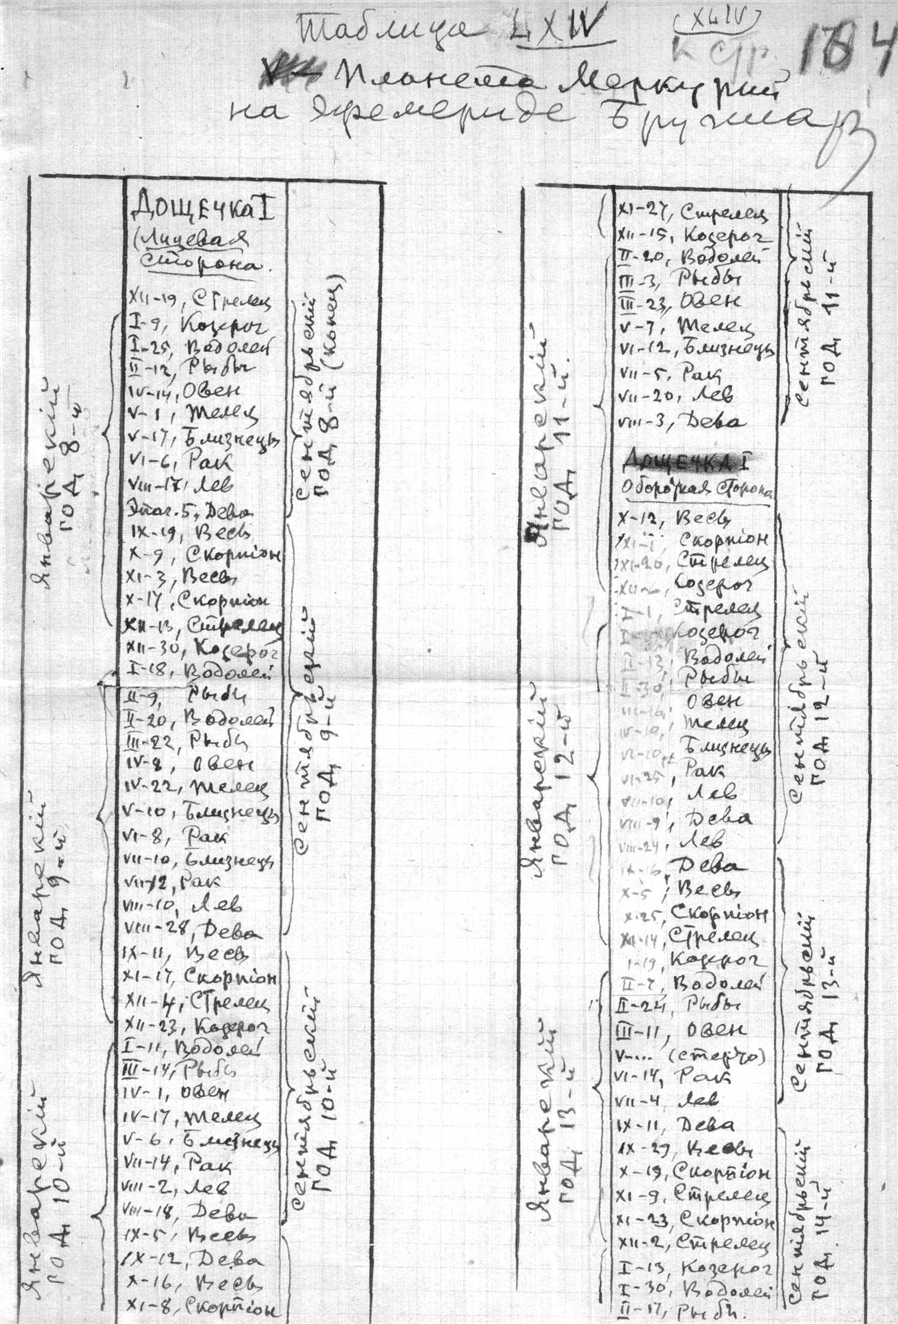 Таблица LXIV
(XLIV)
к стр. 164
V – Планета Меркурий
на эфемериде Бругшa
Январский год 8-й
Январский год 9-й
Январский год 10-й
ДОЩЕЧКА I
(Лицевая
сторона.
XII-19, Стрелец
I-9, Козерог
I-25, Водолей
II-12, Рыбы
IV-14, Овен
V-1, Телец
V-17, Близнецы
VI-6, Рак
VIII-17, Лев
Эпаг. 5, Дева
IX-19, Весы
X-9, Скорпiон
XI-3, Весы
X-17, Скорпiон
XII-13, Стрелец
XII-30, Козерог
I-18, Водолей
II-9, Рыбы
II-20, Водолей
III-22, Рыбы
IV-8, Овен
IV-22, Телец
V-10, Близнецы
VI-8, Рак
VII-10, Близнецы
VII-12, Рак
VIII-10, Лев
VIII-28, Дева
IX-11, Весы
XI-17, Скорпiон
XII-4, Стрелец
XII-23, Козерог
I-11, Водолей
III-14, Рыбы
IV-1, Овен
IV-17, Телец
V-6, Близнецы
VII-14, Рак
VIII-2, Лев
VIII-18, Дева
IX-5, Весы
IX-12, Дева
X-16, Весы
XI-8, Скорпiон
Сентябрьский год 8-й (конец)
Сентябрьский год 9-й
Сентябрьский год 10-й
Январский год 11-й.
Январский год 12-й
Январский год 13-й
XI-27, Стрелец
XII-15, Козерог
II-20, Водолей
III-3, Рыбы
III-23, Овен
V-7, Телец
VI-12, Близнецы
VII-5, Рак
VII-20, Лев
VIII-3, Дева
ДОЩЕЧКА I
Оборотная сторона
X-12, Весы
Скорпiон
XI-20, Стрелец
Козерог
Стрелец
Козерог
II-13, Водолей
II-30, Рыбы
Овен
Телец
Близнецы
VI-25, Рак
Лев
VIII-9, Дева
VIII-24, Лев
IX-16, Дева
X-5, Весы
X-25, Скорпiон
XI-14, Стрелец
I-19, Козерог
II-7, Водолей
II-24, Рыбы
III-11, Овен
V-... (стерто)
VI-14, Рак
VII-4, Лев
IX-11, Дева
IX-29, Весы
X-19, Скорпiон
XI-9, Стрелец
XI-23, Скорпiон
XII-2, Стрелец
I-13, Козерог
I-30, Водолей
II-17, Рыбы.
Сентябрьский год 11-й
Сентябрьский год 12-й
Сентябрьский год 13-й
Сентябрьский год 14-й